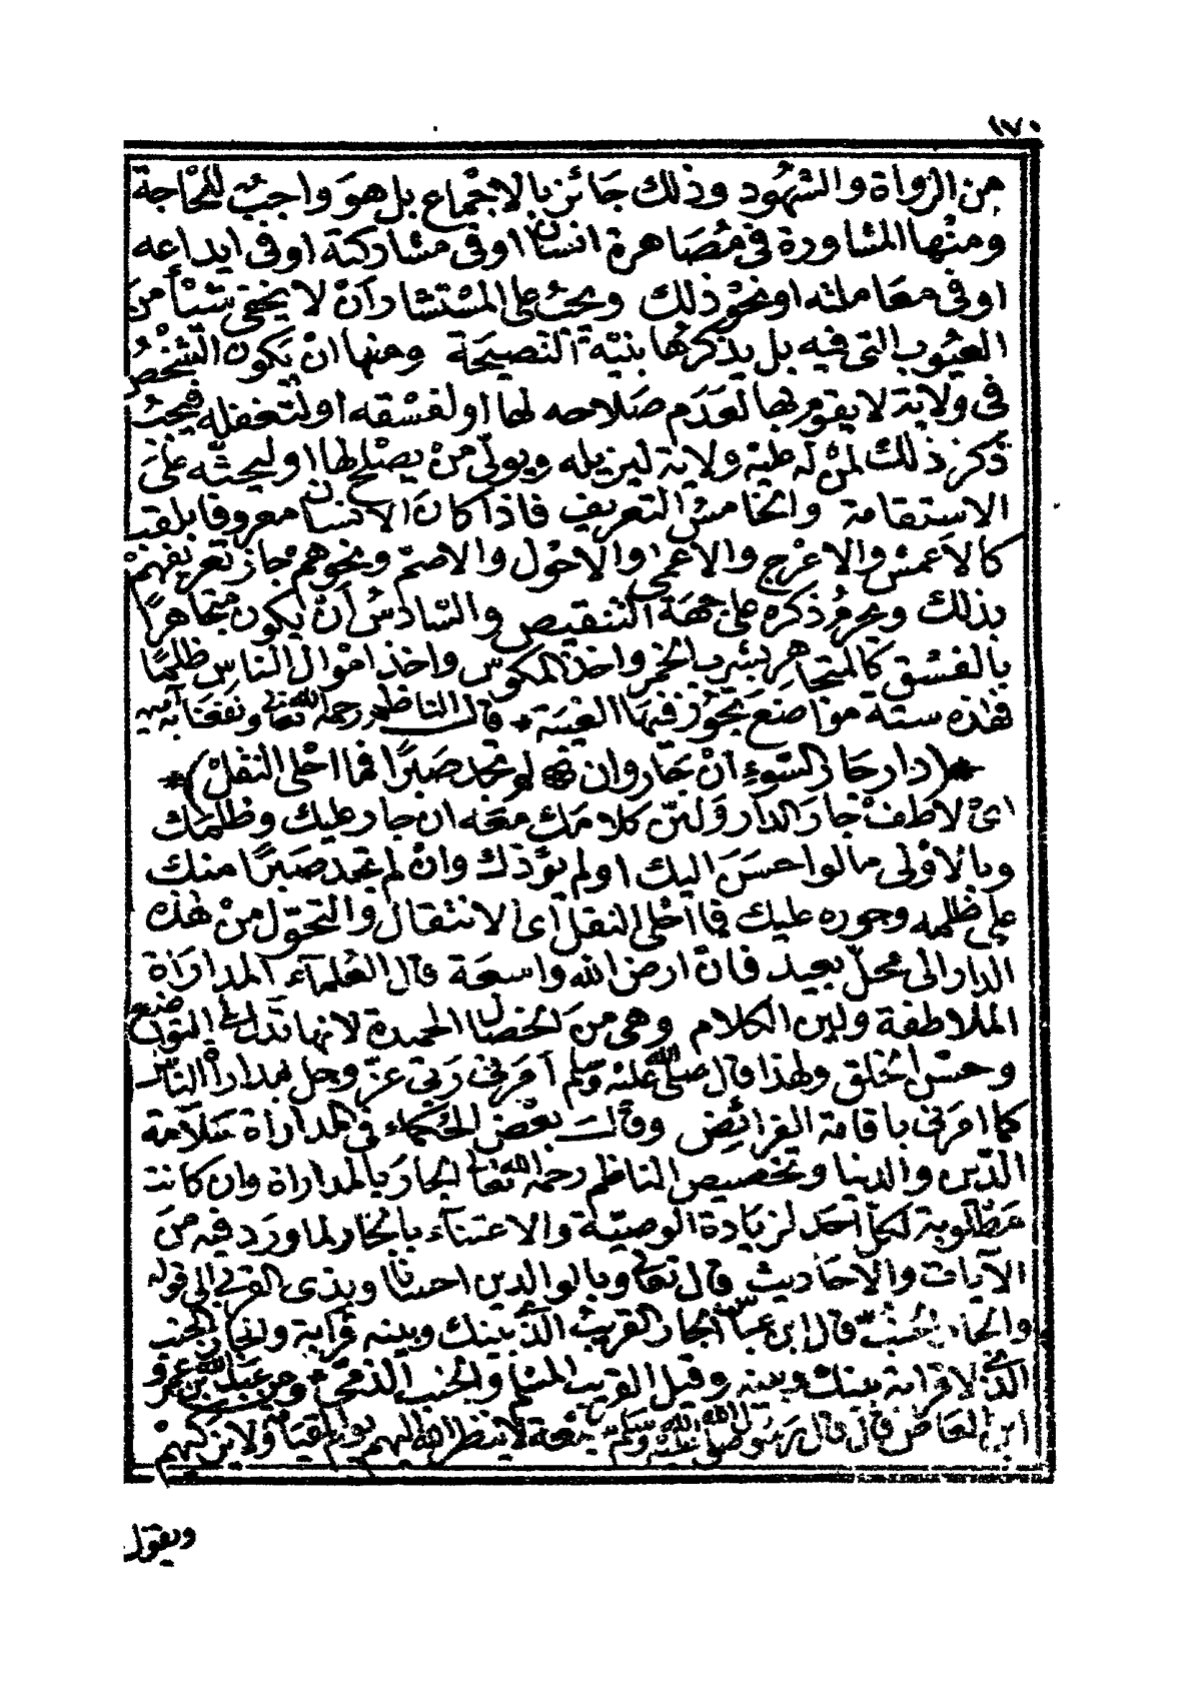 ١٧٠
من الرواة والشهود وذلك جَائز بالاجْماع بل هوَ واجبٌ للحَاجة
ومنْها المشاورة فى مُصَاهرة انسان اوفى مشاركته اوفى ايداعه
اوفى معَاملته اونحوْ ذلك ويجبُ على المسْتشار اَنْ لا يخفى شيْأ منَ
العيُوب التى فيه بل يذكرهَا بنيّة النّصيحَة ومنها انْ يَكون الشّخصُ
فى ولاية لا يقوم بها لعَدَم صَلاحه لها او لفسْقه او لتغفله فيجبُ
ذكرْ ذلك لمنْ له عليْه ولاية ليزيله ويولّى منْ يصْلح لها او ليحثّه علىَ
الاستقامة والخامسُ التعريف فاذا كانَ الانسان معروفا بلقب
كالاَعمش والاعْرج والاعْمى والاحْول والاصمّ ونحوهمْ جاز تعريفهمْ
بذلك ويحرمُ ذكره على جهَة التنقيص والسّادسُ اَنْ يكون متجاهرًا
بالفسْق كالمتجاهر بشرب الخمر واخذ المكوس واخذ امْوال الناس ظلمًا
فهٰذه ستة موَاضعَ تجُوز فيهَا الغيبَة * قال الناظم رحمه الله تعالى ونفعنَا به آمين
*(دار جَار السّوءِ اَنْ جَار وان * لم تجد صَبرًا فما احْلى النقلْ)*
اىْ لاطفْ جارَ الدار وَليّن كلامَك معَه ان جار عليك وظلمَك
وبالاوْلى ما لو احسَنَ اليك اولم يؤذك وانْ لم تجد صَبرًا منك
على ظلمه وجوره عليك فما احْلى النقل اى الانتقال والتحوّل منْ هٰذه
الدار الى محلّ بعيد فانّ ارض الله واسعَة قال العُلمآء المدارَاة
الملاطفة ولين الكلام وهى منَ الخصال الحميدة لانها تدل على التواضع
وحسْن الخلق ولهذا قال صلى الله عليْه وسلم اَمَرنى رَبى عزّ وجل بمداراة النّاس
كما امَرنى باقامة الفرائض وقال بعْض الحُكماء فى المداراة سَلامة
الدّين والدنيا وتخصيص الناظم رحمه الله تعالى الجارَ بالمداراة وان كانت
مَطْلوبة لكلّ اَحَد لزيَادة الوصيّة والاعتنآء بالجار لما ورَد فيه منَ
الآيات والاحَاديث قال تعالى وبالوالدين احسانا وبذى القربى الى قوله
والجار الجُنب قال ابن عباس الجار القريب الذى بينك وبينه قرابة والجار الجنب
الذى لا قرابة بينك وبينه وقيل القريب المسْلم والجنب الذمّى وعن عَبد الله بن عمْرو
ابن العاص قال قال رسُول الله صلى الله عليه وسلم لا ينظر الله اليهم يوم القيامة ولا يزكيهمْ
ويقول